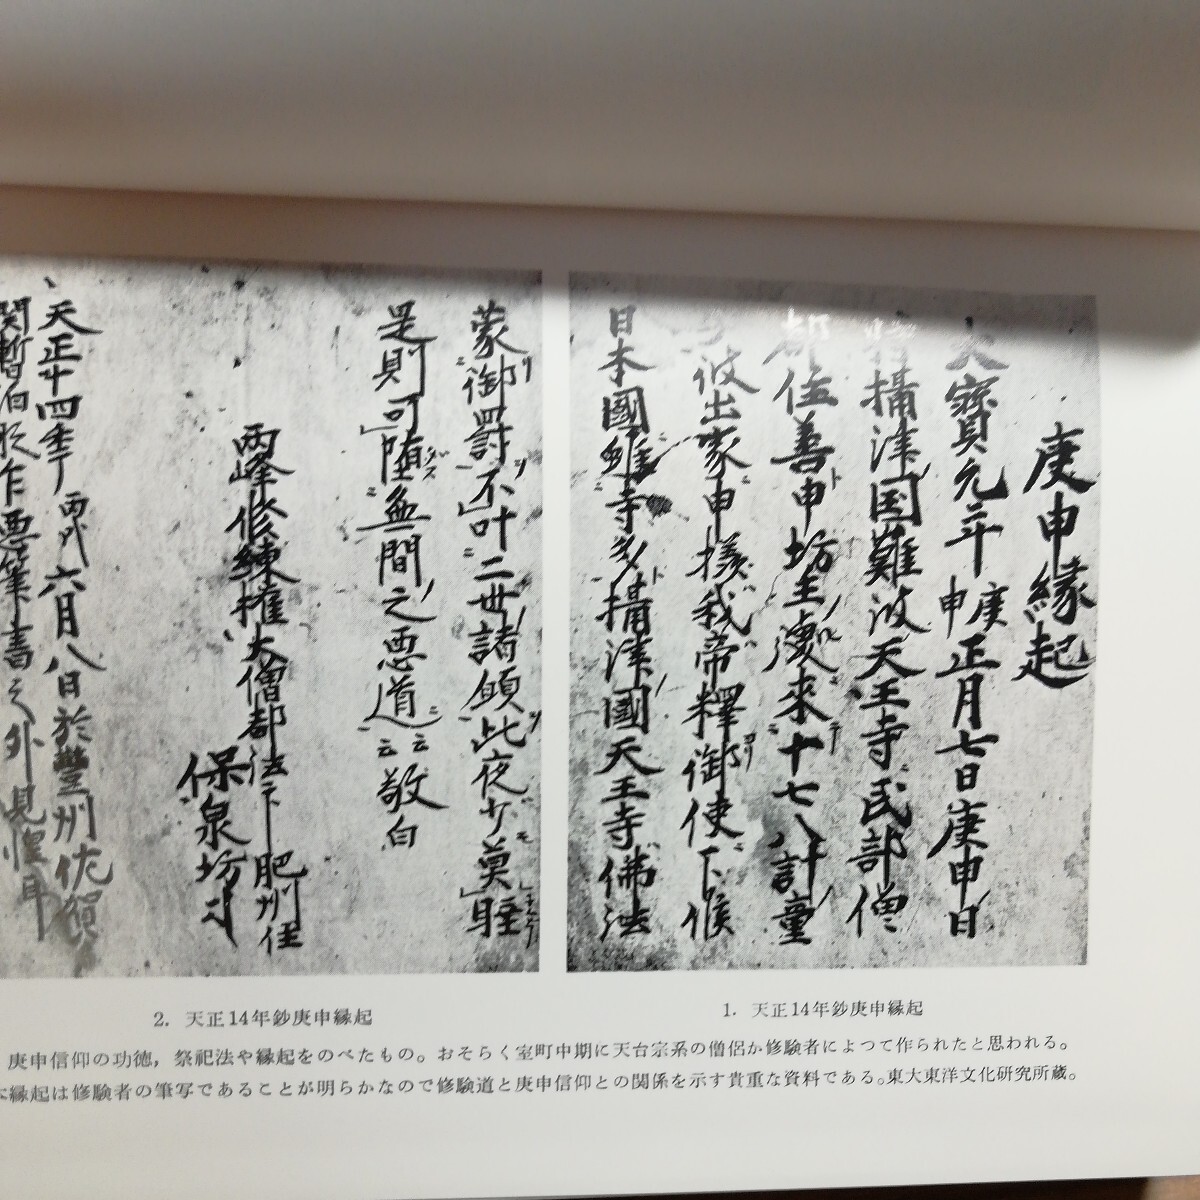 庚申縁起
大寳元年庚申正月七日庚申日
攝津国難波天王寺民部僧
都住善申坊主處来十七八計童
彼出家申様我帝釋御使下候
日本國雖寺多攝津國天王寺佛法
1. 天正14年鈔庚申縁起
蒙御罸不叶二世諸願此夜少莫睡
是則可堕無間之悪道云云敬白
両峰修練権大僧都法下肥州住
保泉坊
天正十四年丙戌六月八日於豊州佐賀
関暫泊形乍悪筆書之外見惶耳
2. 天正14年鈔庚申縁起
庚申信仰の功徳，祭祀法や縁起をのべたもの。おそらく室町中期に天台宗系の僧侶か修験者によつて作られたと思われる。
本縁起は修験者の筆写であることが明らかなので修験道と庚申信仰との関係を示す貴重な資料である。東大東洋文化研究所蔵。